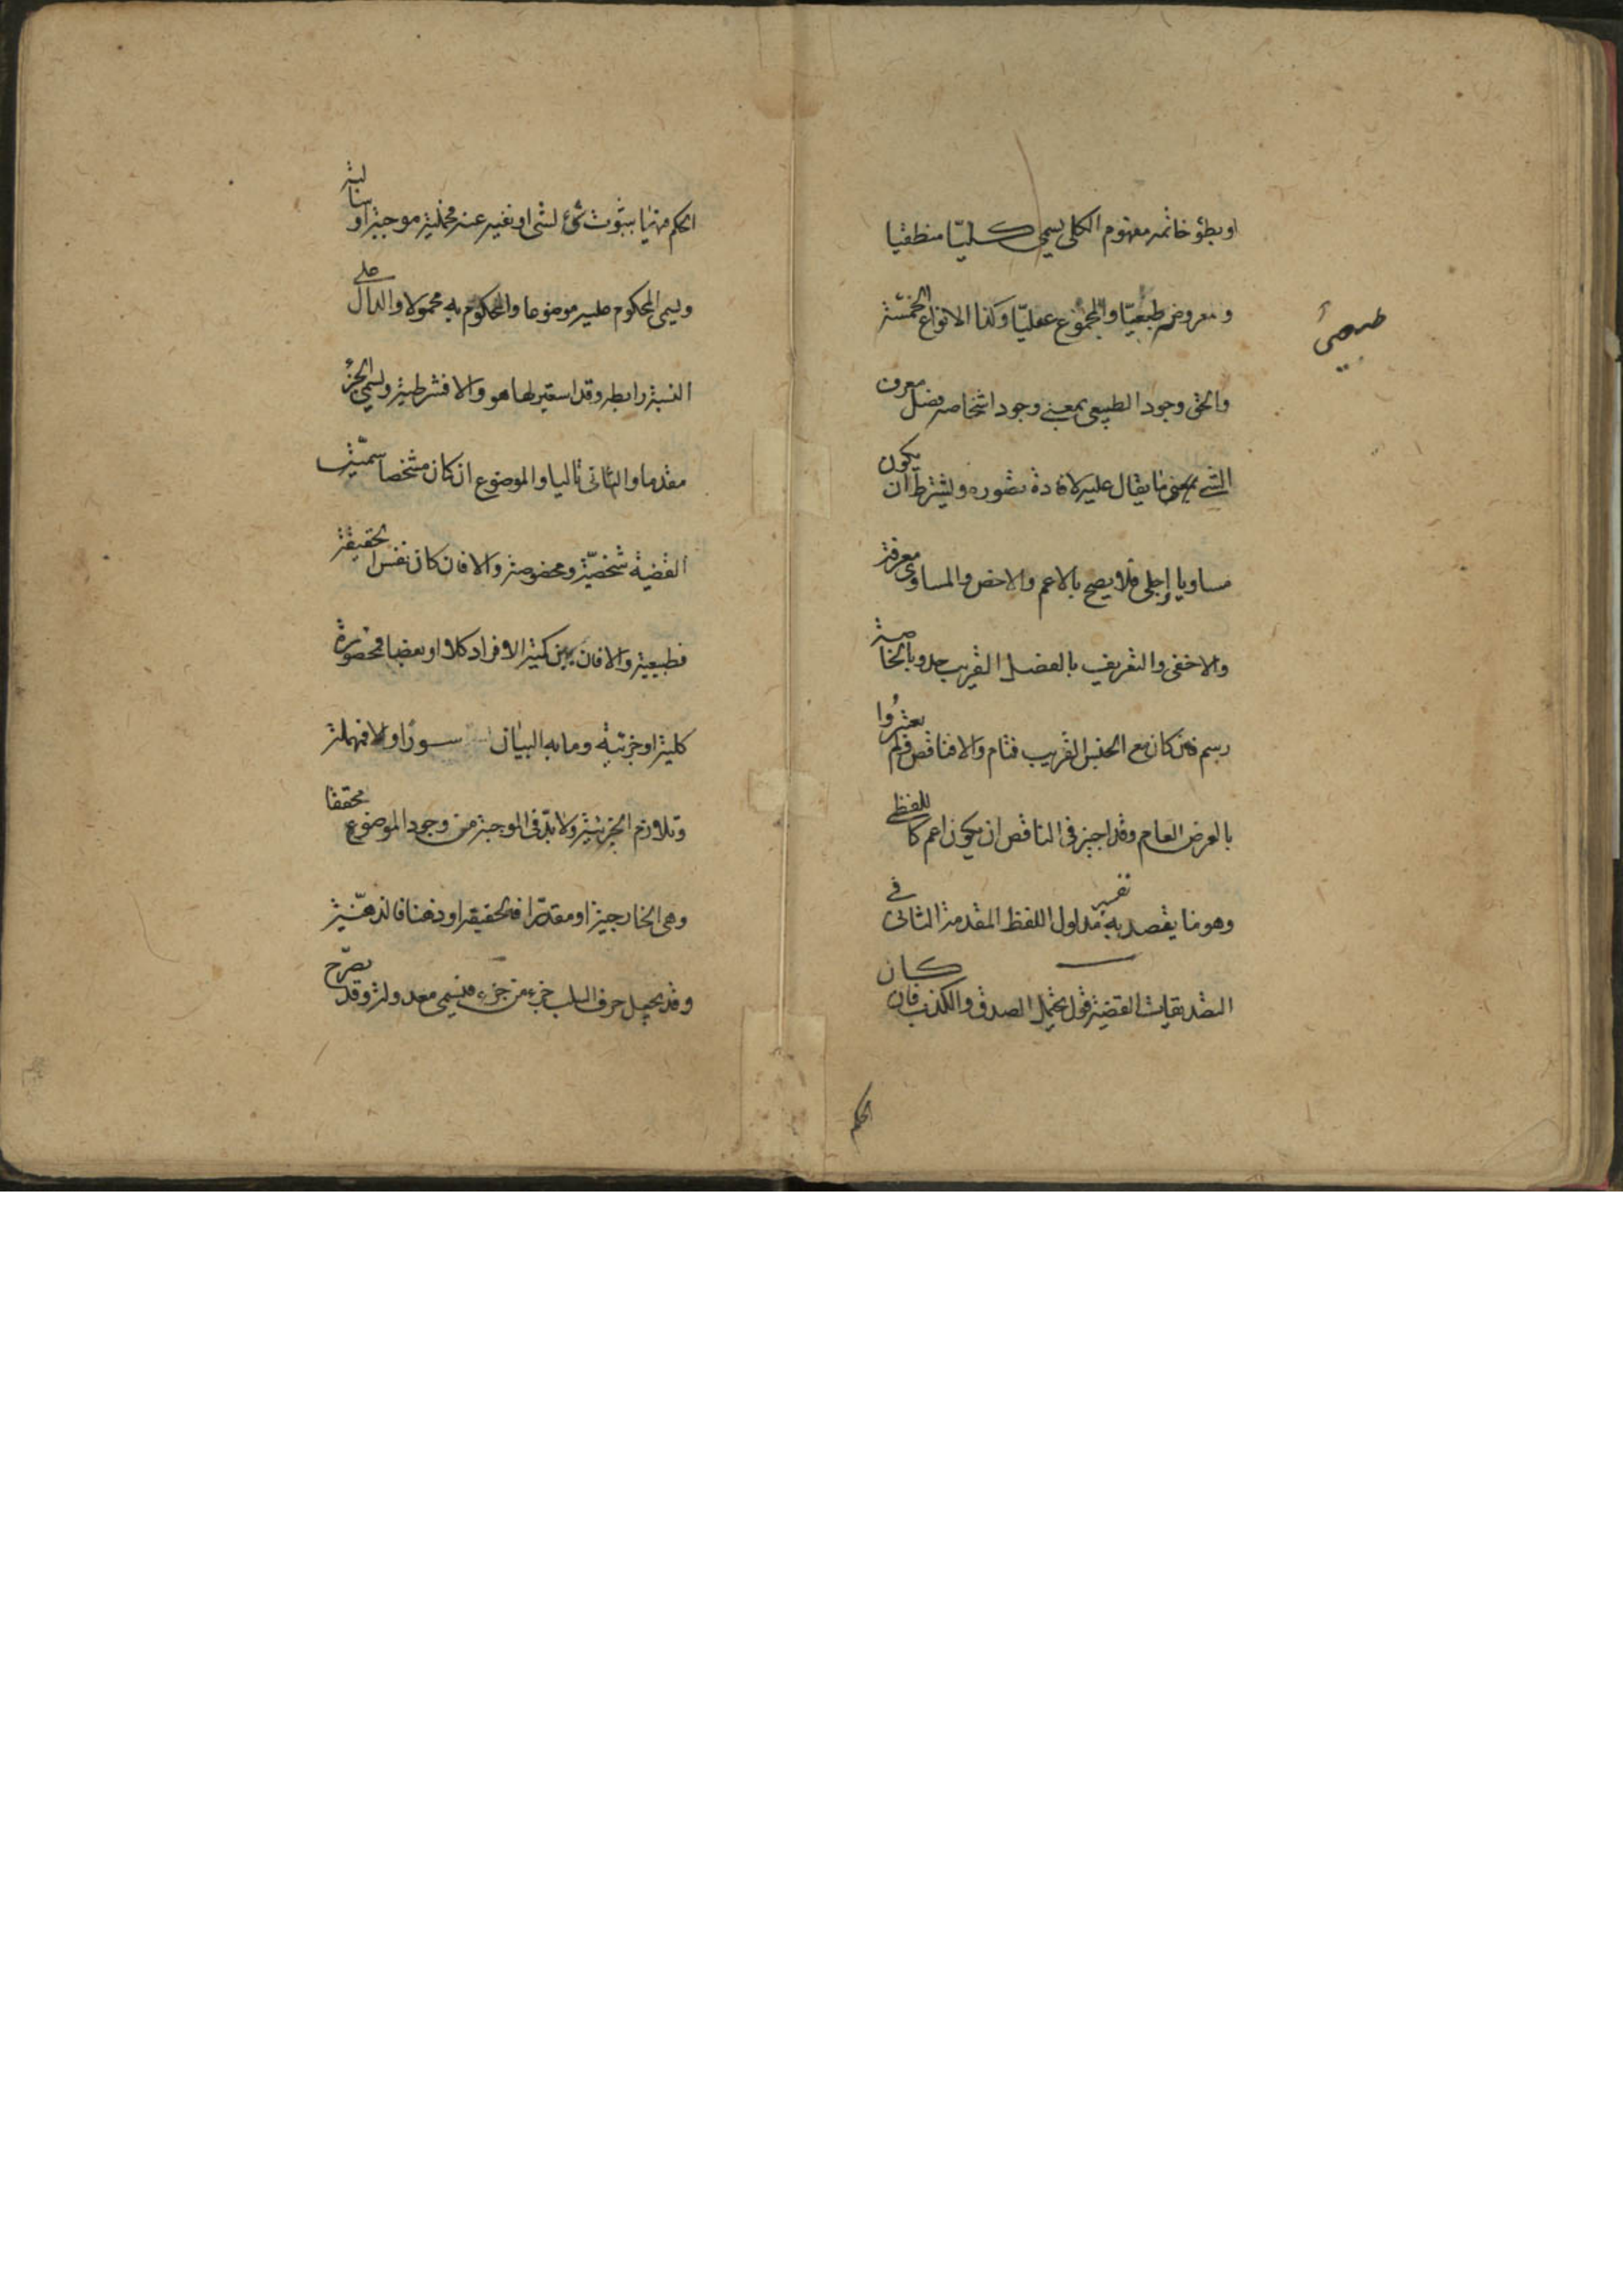 او بطؤ خاتمه مفهوم الكلي يسمى كليّا منطقيا
ومعروضه طبعيّا والمجموع عقليّا وكذا الانواع الخمسة
طبيعي
والحق وجود الطبيعى بمعنى وجود اشخاصه فصل معرف
الشيء بمعنى ما يقال عليه لافادة تصوره ويشترط ان يكون
مساويا اجلى فلا يصح بالاعم والاخص والمساوى معرفة
والاخفى والتعريف بالفصل القريب حد وبالخاصة
رسم فان كان مع الجنس القريب فتام والا فناقص فلم يعتبروا
بالعرض العام وقد اجيز فى الناقص ان يكون اعم كاللفظي
وهو ما يقصد به تفسير مدلول اللفظ المقدمة الثانى في
التصديقات القضية قول يحتمل الصدق والكذب فان كان
الحكم
الحكم فيها بثبوت شئ لشئ او نفيه عنه فحملية موجبة او سالبة
ويسمى المحكوم عليه موضوعا والمحكوم به محمولا والدال على
النسبة رابطه وقد استعير لها هو والا فشرطية ويسمى الجزؤ
مقدما والثانى تاليا والموضوع ان كان مشخصا سمّيت
القضية شخصيّة ومخصوصة والا فان كان نفس الحقيقة
فطبيعية والا فان بين كمية الافراد كلا او بعضا فمحصورة
كلية او جزئية وما به البيان سورا والا فمهملة
وتلازم الجزئية ولا بدّ فى الموجبة من وجود الموضوع محققا
وهى الخارجية او مقدّرا فالحقيقة او ذهنا فالذهنيّة
وقد يجعل حرف السلب جزء من جزء فيسمى معدولة وقد يصرّح